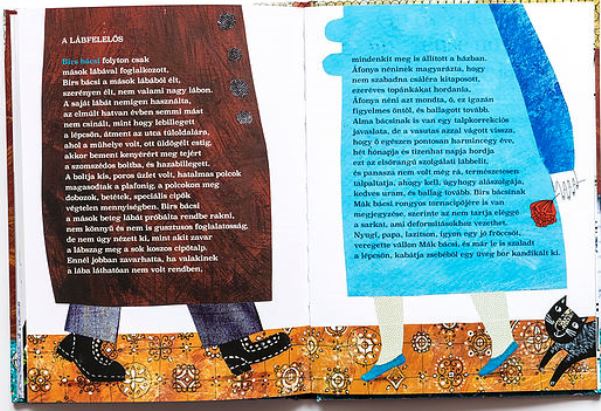 A LÁBFELELŐS
Birs bácsi folyton csak
mások lábával foglalkozott,
Birs bácsi a mások lábából élt,
szerényen élt, nem valami nagy lábon.
A saját lábát nemigen használta,
az elmúlt hatvan évben semmi mást
nem csinált, mint hogy lebillegett
a lépcsőn, átment az utca túloldalára,
ahol a műhelye volt, ott üldögélt estig,
akkor bement kenyérért meg tejért
a szomszédos boltba, és hazabillegett.
A boltja kis, poros üzlet volt, hatalmas polcok
magasodtak a plafonig, a polcokon meg
dobozok, betétek, speciális cipők
végtelen mennyiségben. Birs bácsi
a mások beteg lábát próbálta rendbe rakni,
nem könnyű és nem is gusztusos foglalatosság,
de nem úgy nézett ki, mint akit zavar
a lábszag meg a sok koszos cipőtalp.
Ennél jobban zavarhatta, ha valakinek
a lába láthatóan nem volt rendben,
mindenkit meg is állított a házban.
Áfonya néninek magyarázta, hogy
nem szabadna csáléra kitaposott,
ezeréves topánkákat hordania,
Áfonya néni azt mondta, ó, ez igazán
figyelmes öntől, és ballagott tovább.
Alma bácsinak is van egy talpkorrekciós
javaslata, de a vasutas azzal vágott vissza,
hogy ő egészen pontosan harmincegy éve,
hét hónapja és tizenhat napja hordja
ezt az elsőrangú szolgálati lábbelit,
és panasza nem volt még rá, természetesen
talpaltatja, ahogy kell, úgyhogy alászolgája,
kedves uram, és ballag tovább. Birs bácsinak
Mák bácsi rongyos tornacipőjére is van
megjegyzése, szerinte az nem tartja eléggé
a sarkat, ami deformitásokhoz vezethet.
Nyugi, papa, lazítson, igyon egy jó fröccsöt,
veregette vállon Mák bácsi, és már le is szaladt
a lépcsőn, kabátja zsebéből egy üveg bor kandikált ki.